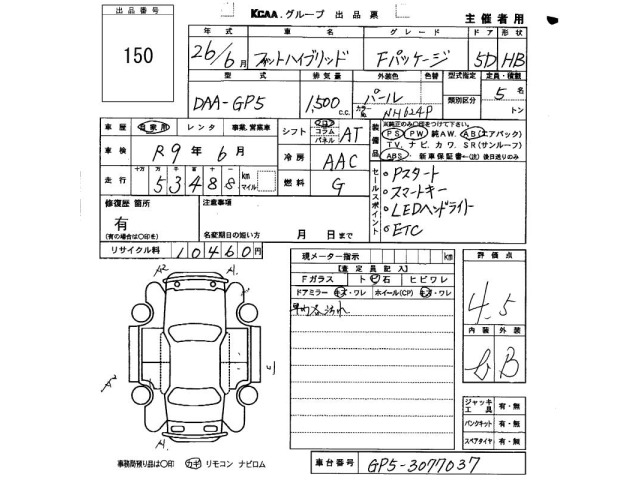 KCAA グループ 出品票
主催者用
出品番号
150
年式 車名 グレード ドア 形状
26/6月 フィットハイブリッド Fパッケージ 5D HB
型式 排気量 外装色 色替 型式指定 定員・積載
DAA-GP5 1,500c.c. パール カラーNo. NH624P 類別区分 5名
トン
車歴 自家用 レンタ 事業、営業車
シフト フロア コラム パネル AT
装備品
※純正のみ○印をつけて下さい。
PS PW 純AW. AB(エアバック)
TV. ナビ. カワ. SR(サンルーフ)
ABS 新車保証書←(注)後日送りのみ
車検 R9年6月
冷房 AAC
走行 十万 万 千 百 十 53488 km マイル
燃料 G
セールスポイント
○Pスタート
○スマートキー
○LEDヘッドライト
○ETC
修復歴 箇所
有
(有の場合は○印を)
注意事項
名変期日の短い方 月 日まで
リサイクル料 10460円
現メーター指示 km
【査定員記入】
Fガラス トビ石 ヒビワレ
ドアミラー キズ・ワレ ホイール(CP) キズ・ワレ
評価点
4.5
内装 外装
B
A2 A1
A2
A1
ジャッキ 工具 有・無
パンクキット 有・無
スペアタイヤ 有・無
事務局預り品は○印 カギ リモコン ナビロム
車台番号 GP5-3077037